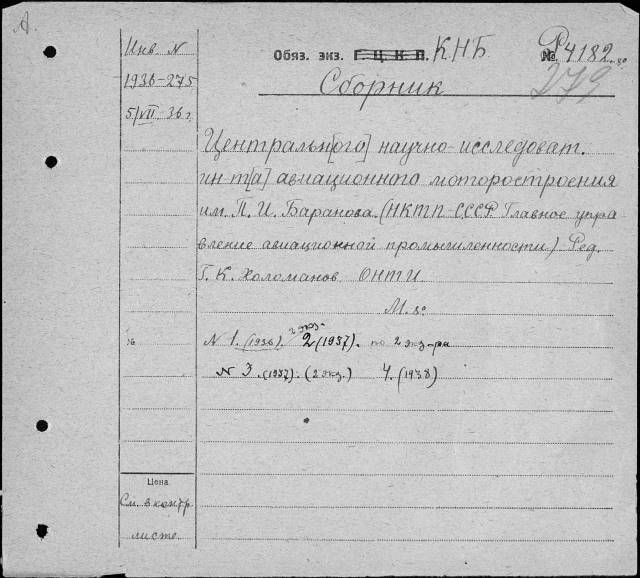 А.
Инв. N
1936-275
5/VII-36 г.
Обяз. экз. Г.Ц.К.П. КНБ
№ Р4182.80
279
Сборник
Центральн[ого] научно-исследоват.
ин-т[а] авиационного моторостроения
им. П. И. Баранова. (НКТП-СССР. Главное упра
вление авиационной промышленности) Ред.
Г. К. Холоманов. ОНТИ.
М. 8°
№
N 1. (1936). 2 экз. 2 (1937). по 2 экз-ра
N 3. (1937). (2 экз.) 4. (1938)
Цена
См. в контр
листе.